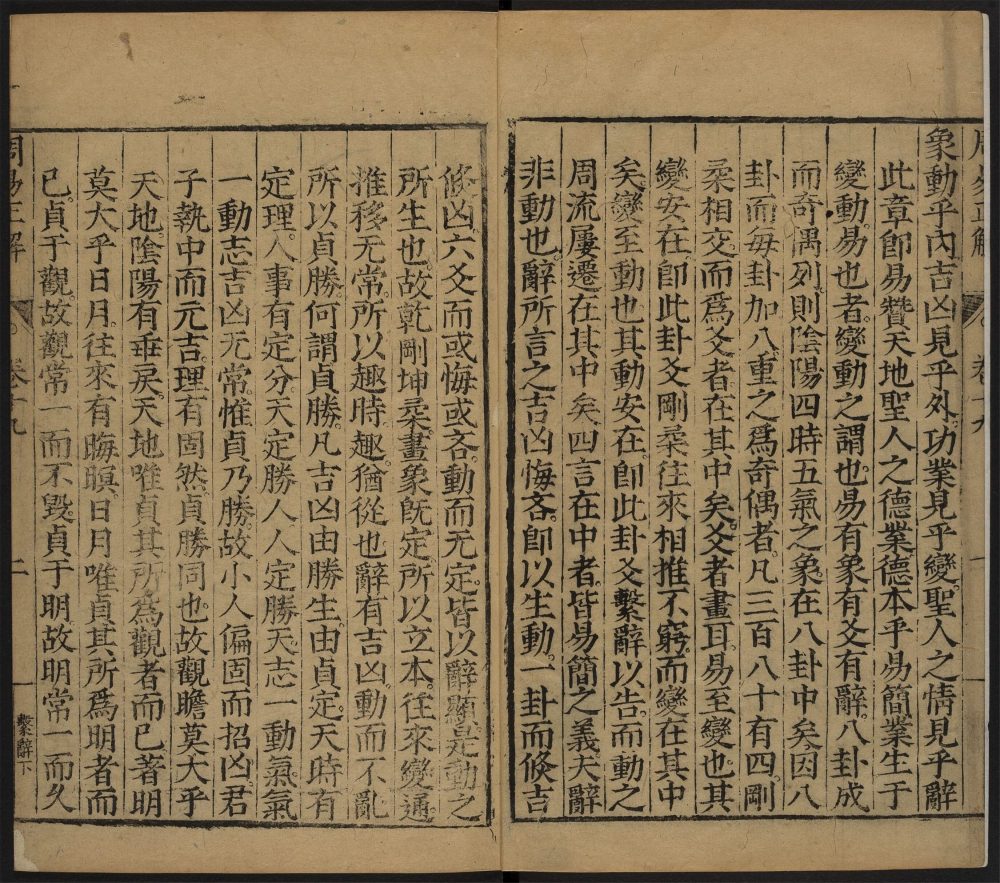 象動乎內吉凶見乎外功業見乎變聖人之情見乎辭
此章即易贊天地聖人之德業德本乎易簡業生于
變動易也者變動之謂也易有象有爻有辭八卦成
而奇偶列則陰陽四時五氣之象在八卦中矣因八
卦而每卦加八重之爲奇偶者凡三百八十有四剛
柔相交而爲爻者在其中矣爻者畫耳易至變也其
變安在即此卦爻剛柔往來相推不窮而變在其中
矣變至動也其動安在即此卦爻繫辭以告而動之
周流屢遷在其中矣四言在中者皆易簡之義夫辭
非動也辭所言之吉凶悔吝即以生動一卦而倐吉
倐凶六爻而或悔或吝動而无定皆以辭顯是動之
所生也故乾剛坤柔畫象旣定所以立本往來變通
推移无常所以趣時趣猶從也辭有吉凶動而不亂
所以貞勝何謂貞勝凡吉凶由勝生由貞定天時有
定理人事有定分天定勝人人定勝天志一動氣氣
一動志吉凶无常惟貞乃勝故小人偏固而招凶君
子執中而元吉理有固然貞勝同也故觀瞻莫大乎
天地陰陽有垂戾天地唯貞其所爲觀者而已著明
莫大乎日月往來有晦暝日月唯貞其所爲明者而
已貞于觀故觀常一而不毀貞于明故明常一而久
周易正解
卷十九
二
繫辭下